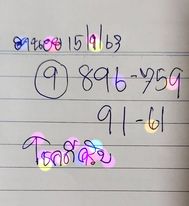 ฮานอย 15/9/63
9 896-759
91-61
โชคดีครับ